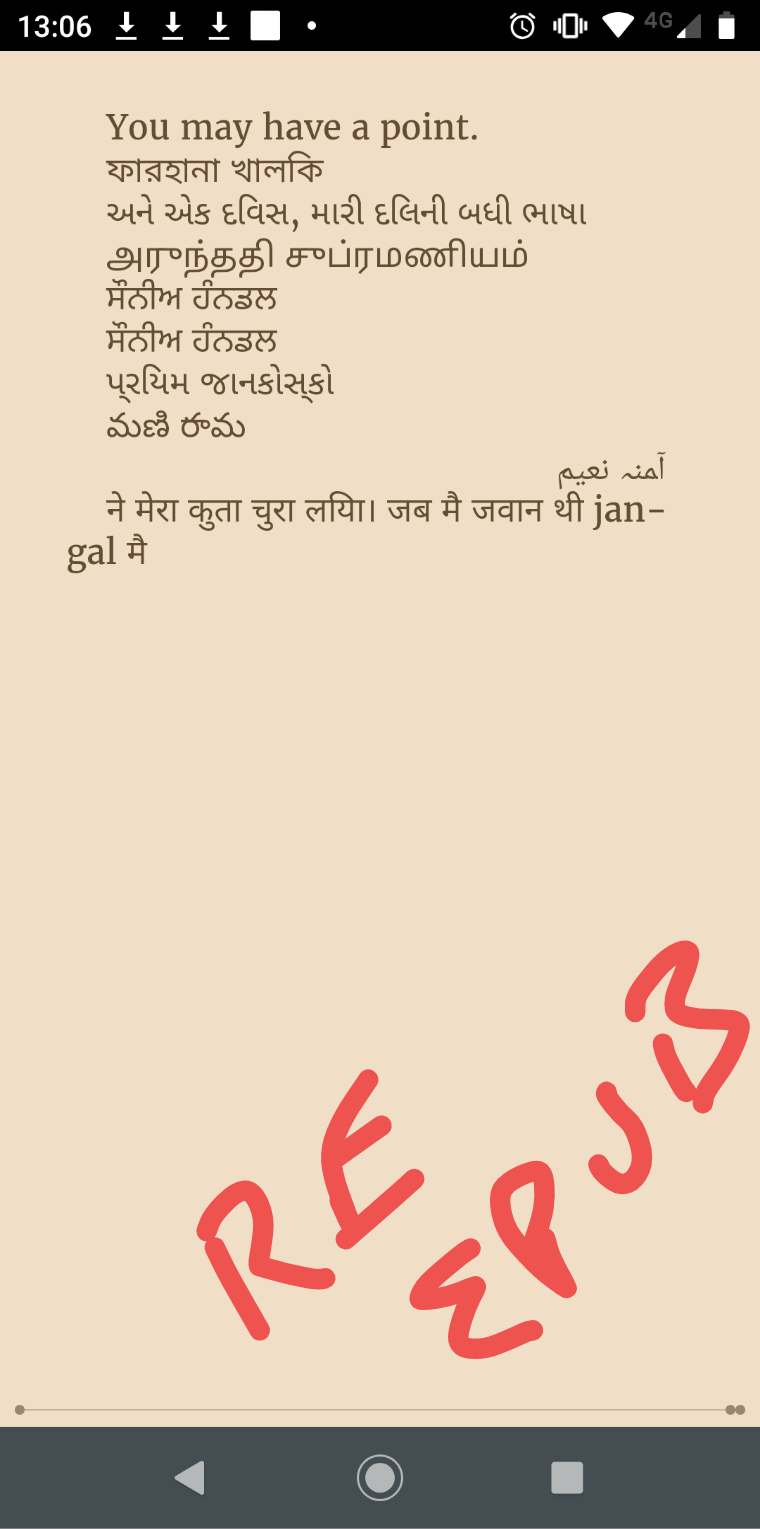 13:06
4G
You may have a point.
ফারহানা খালকি
અને એક દવિસ, મારી દલિની બધી ભાષા
அருந்ததி சுப்ரமணியம்
ਸੌਨੀਅ ਹੰਨਡਲ
ਸੌਨੀਅ ਹੰਨਡਲ
પ્રયિમ જાનકોસ્કો
మణి రామ
آمنہ نعیم
ने मेरा कुता चुरा लयिा। जब मै जवान थी jan-
gal मै
RE
EPUB